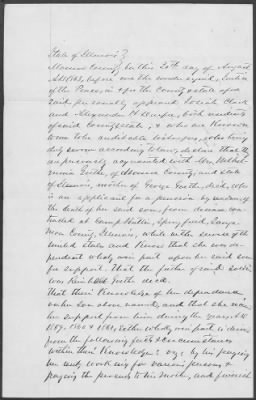 State of Illinois }
Macon County, On this 20th day of August
AD 1863, before me the undersigned, Justice
of the Peace in & for the County & State afore
said personally appeared Josiah Clark
and Alexander H. both residents
of said County & State, & who are known
to me to be creditable witnesses, who being
duly sworn according to law, declare that they
are personally acquainted with Mrs. Wilhel-
mina Guthe, of County, and State
of Illinois, mother of George Guthe, decd., who
is an applicant for a pension by reason of
the death of her said son, from disease con-
tracted at Camp Butler, Springfield, Sanga-
mon County, Illinois, while in the service of the
United States and know that she was de-
pendent wholly or in part upon her said son
for support. That the father of said soldier
was Guthe decd.
That their knowledge of her dependence
on her son above named, and that she received
her support from him during the years, A.D.
1859, 1860 & 1861, either wholly or in part is derived
from the following facts & circumstances
within their knowledge: viz: by his paying
her rent, working for various persons &
paying the proceeds to his mother, and furnish